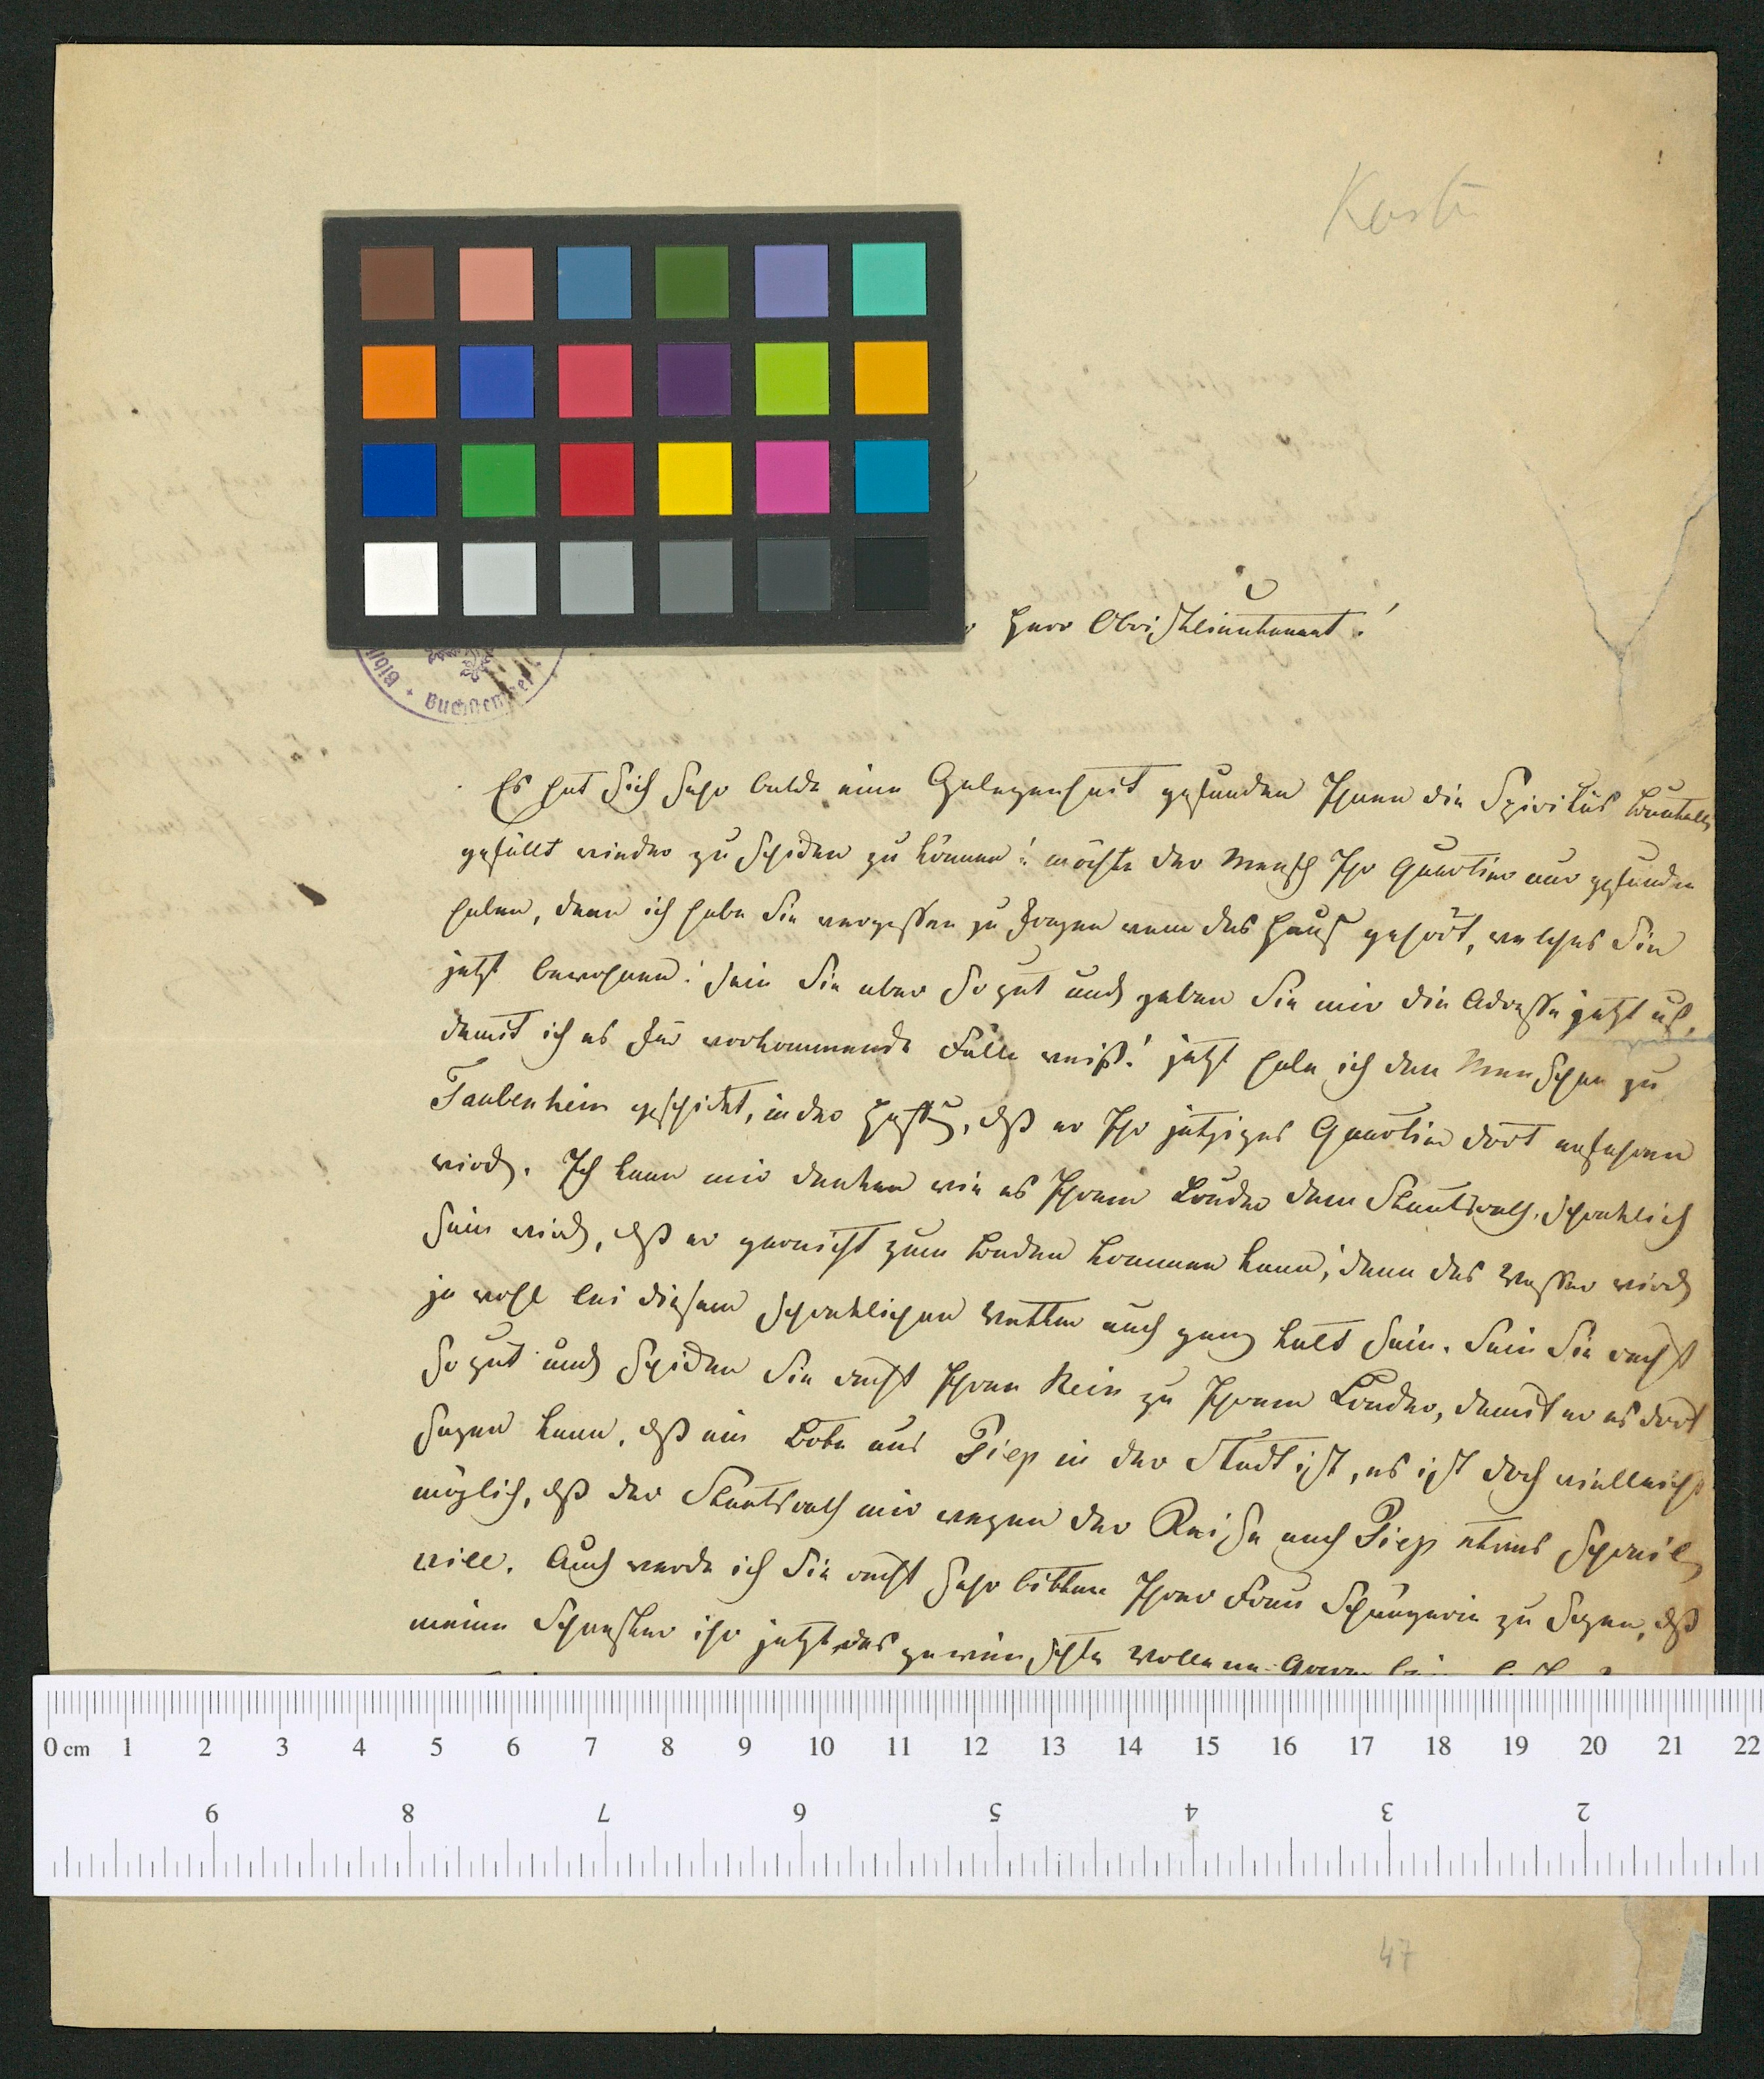 Herr Obristleinutenant!
Es hat sich sehr balde eine Gelegenheit gefunden Ihnen die Spiritus
gefüllt wieder zu schicken zu können! möchte der Mensch Ihr Quartier nur gefunden
haben, denn ich habe Sie vergessen zu fragen wem das Hauß gehört, welches Sie
jetzt bewohnen! sein Sie aber so gut und geben Sie mir die Adresse jetzt uf,
damit ich es für vorkommende Fälle weiß! jetzt habe ich den Menschen zu
Taubenheim geschickt, in der Hoffng, dß er Ihr jetziges Quartier dort erfahren
wird. Ich kann mir denken wie es Ihrem Bruder dem Staatsrath schreklich
sein wird, dß er garnicht zum Baden kommen kann, denn das Wasser wird
ja wohl bei diesem schreklichen Wetter auch ganz kalt sein. Sein Sie recht
so gut und schicken Sie recht Ihren Rein zu Ihrem Bruder, damit er es dort
sagen kann, dß ein Bote aus Piep in der Stadt ist, es ist doch vielleicht
möglich, dß der Staatsrath mir wegen der Reise nach Piep etwas schreiben
will. Auch werde ich Sie recht sehr bitten Ihrer Frau Schwägerin zu sagen, dß
meine Schwester ihr jetzt das gewünschte wollene Garn
0 cm 1 2 3 4 5 6 7 8 9 10 11 12 13 14 15 16 17 18 19 20 21 22
9 8 7 6 5 4 3 2
47